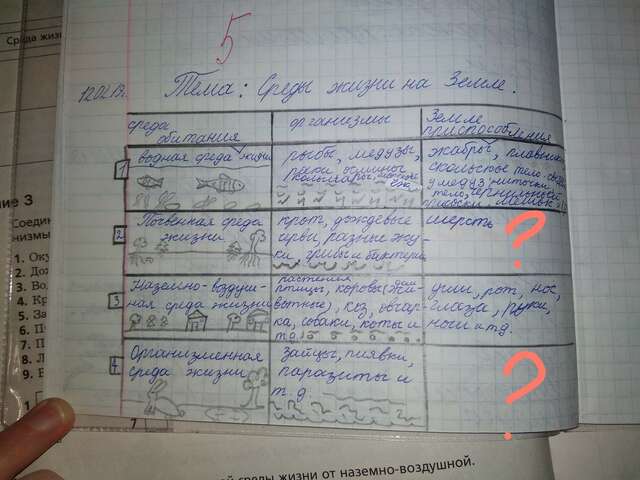 Среда жиз
5
12.02.13.
Тема: Среды жизни на Земле.
среда
обитания
организмы
Земле
приспособления
1
водная среда жизни
рыбы, медузы,
жабры, плавники
скользкое тело
у медуз
тело
2
Почвенная среда
жизни
крот, дождевые
черви, разные жу-
ки, грибы и бактерии
шерсть
?
3
Наземно-воздуш-
ная среда жизни
растения
птицы, коровы
ка, собаки, коты и
т.д.
уши, рот, нос,
глаза, руки,
ноги и т.д.
4
Организменная
среда жизни
зайцы, пиявки,
паразиты и
т.д.
?
ие 3
Соедин
низмы
1. Ок
2. До
3. Во
4. Кр
5. За
6. П
7. П
8. Л
9. Е
1
7
й среды жизни от наземно-воздушной.